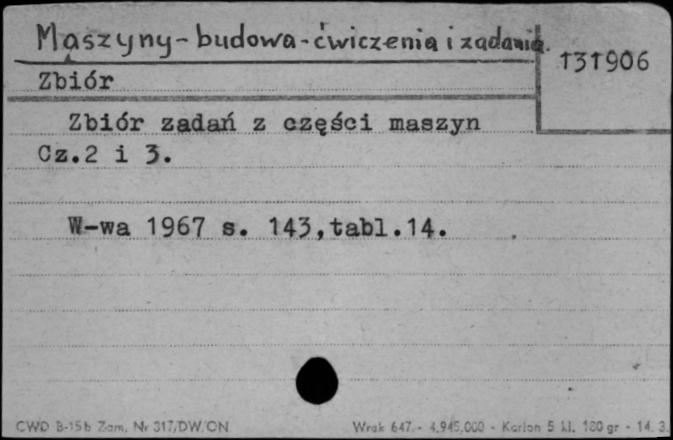 Maszyny - budowa - ćwiczenia i zadania.
131906
Zbiór
Zbiór zadań z części maszyn
Cz.2 i 3.
W-wa 1967 s. 143,tabl.14.
CWD B-15b Zam. Nr 317/DW/ON Wrak 647 - 4.945.000 - Karton 5 kl. 180 gr - 14. 3.